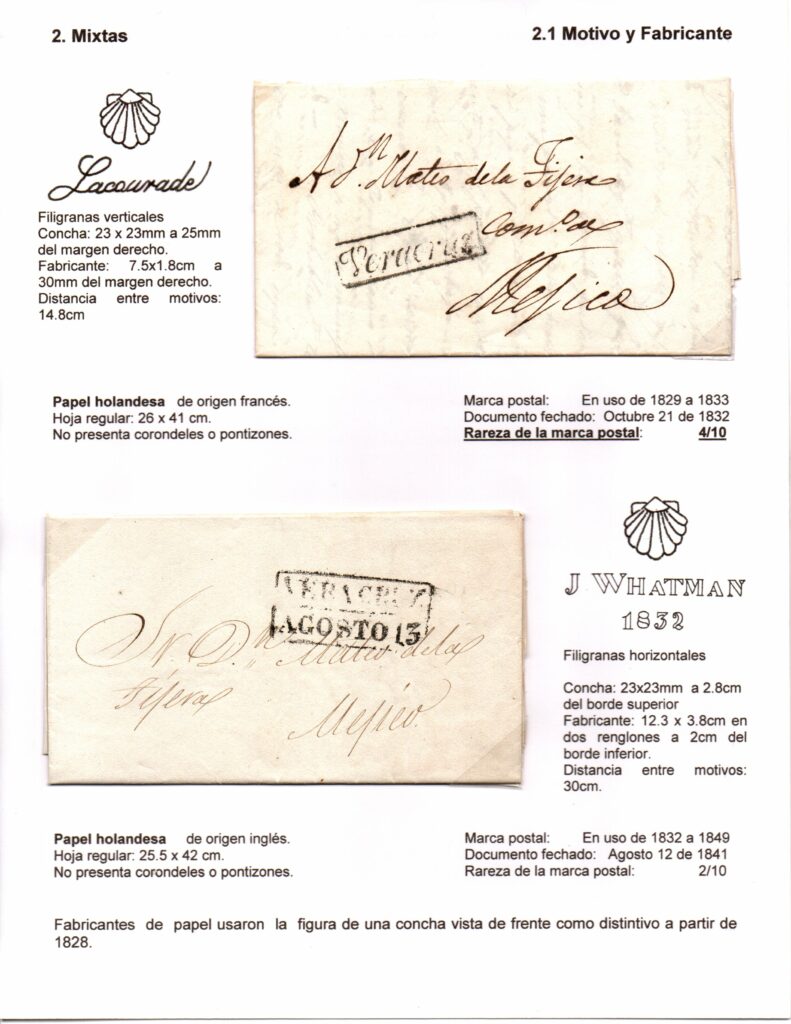 2. Mixtas
2.1 Motivo y Fabricante
Lacourade
Filigranas verticales
Concha: 23 x 23mm a 25mm
del margen derecho.
Fabricante: 7.5x1.8cm a
30mm del margen derecho.
Distancia entre motivos:
14.8cm
A Dn. Mateo de la Fijera
Como. de
Veracruz
Mejico
Papel holandesa de origen francés.
Hoja regular: 26 x 41 cm.
No presenta corondeles o pontizones.
Marca postal: En uso de 1829 a 1833
Documento fechado: Octubre 21 de 1832
Rareza de la marca postal: 4/10
VERACRUZ
AGOSTO 13
Sr. Dn. Mateo de la
Fijera
Mejico.
J WHATMAN
1832
Filigranas horizontales
Concha: 23x23mm a 2.8cm
del borde superior
Fabricante: 12.3 x 3.8cm en
dos renglones a 2cm del
borde inferior.
Distancia entre motivos:
30cm.
Papel holandesa de origen inglés.
Hoja regular: 25.5 x 42 cm.
No presenta corondeles o pontizones.
Marca postal: En uso de 1832 a 1849
Documento fechado: Agosto 12 de 1841
Rareza de la marca postal: 2/10
Fabricantes de papel usaron la figura de una concha vista de frente como distintivo a partir de
1828.